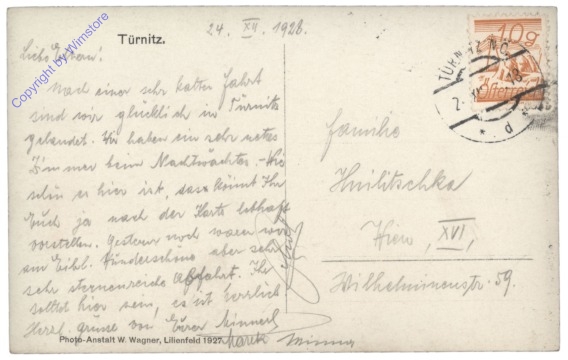 24. XII. 1928.
Türnitz.
Copyright by Wimstore
Nach einer sehr kalten Fahrt
sind wir glücklich in Türnitz
gelandet. Wir haben ein sehr nettes
Zimmer beim Nachtwächter. – Wie
schön es hier ist, das könnt Ihr
Euch ja nach der Karte lebhaft
vorstellen. Gestern noch waren wir
am Eibl. Wunderschöne aber sehr
sehr sternenreiche Abfahrt. Ihr
solltet hier sein, es ist herrlich
Herzl. Grüße von Eurer
Photo-Anstalt W. Wagner, Lilienfeld 1927.
10g
Österreich
TÜRNITZ N.Ö.
* d
Familie
Hnilitschka
Wien, XVI,
Wilhelminenstr. 59.